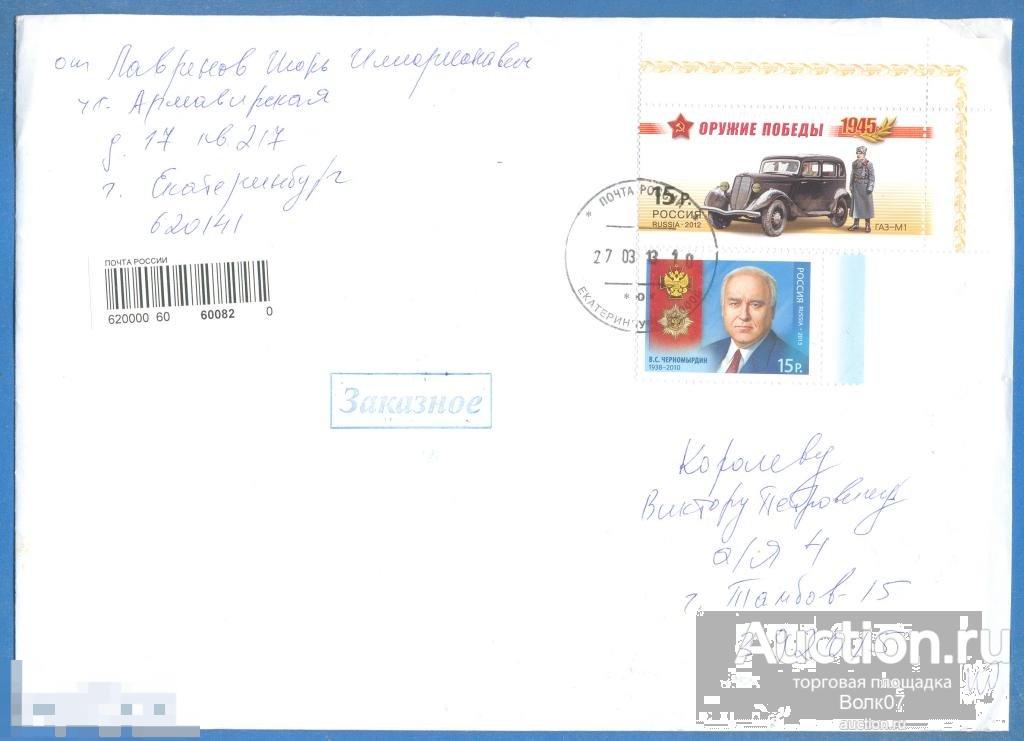 от Лавренов Игорь Илларионович
ул. Армавирская
д. 17 кв. 217
г. Екатеринбург
620141
ПОЧТА РОССИИ
620000 60 60082 0
ОРУЖИЕ ПОБЕДЫ 1945
15 Р.
РОССИЯ
RUSSIA • 2012
ГАЗ-М1
* ПОЧТА РОССИИ
27 03 13 10
* Ю *
ЕКАТЕРИНБУРГ
РОССИЯ RUSSIA • 2013
В.С. ЧЕРНОМЫРДИН
1938–2010
15 Р.
Заказное
Королеву
Виктору Петровичу
а/я 4
г. Тамбов-15
Auction.ru
торговая площадка
Волк07
auction.ru